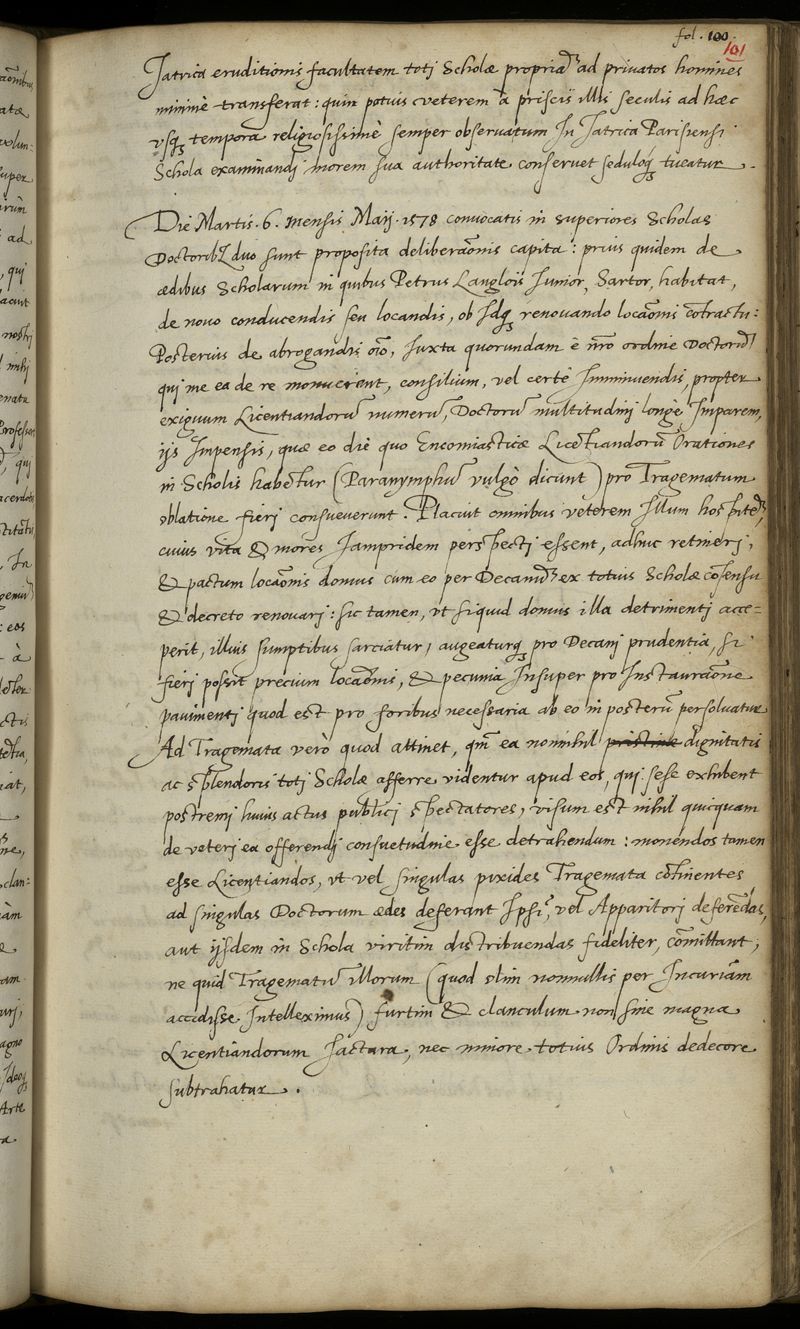 fol. 100.
101
Iatricæ eruditionis facultatem toti Scholæ propriā ad priuatos homines
minimè transferat: quin potius veterem à priscis illis seculis ad hæc
vsq; tempora religiosissimè semper obseruatum In Iatrica Parisiensi
Schola examinandi morem sua authoritate conseruet seduloq; tueatur.
Die Martis. 6. mensis Maij. 1578 conuocatis in superiores Scholas
Doctorib; duo sunt proposita deliberaōnis capita: prius quidem de
ædibus Scholarum in quibus Petrus Langlois Iunior, Sartor, habitat,
de nouo conducendis seu locandis, ob Idq; renouando locaōnis cōtractu:
Posterius de abrogandis oīo, Iuxta quorundam è nrō ordine Doctorū
qui me ea de re monuerant, consilium, vel certè Imminuendis, propter
exiguum Licentiandorū numerū, Doctorū multitudini longè Imparem,
ijs Impensis, quæ eo die quo Encomiasticæ Licētiandorū Orationes
in Scholis habētur (Paranymphū vulgò dicunt) pro Tragematum
oblatione fieri consueuerunt. Placuit omnibus veterem Illum hospitē,
cuius vita & mores Iampridem perspecti essent, adhuc retineri,
& pactum locaōnis domus cum eo per Decanū ex totius Scholæ cōsensu
& decreto renouari: sic tamen, vt siquid domus illa detrimenti acce=
perit, illius sumptibus sarciatur, augeaturq; pro Decani prudentia, si
fieri possit precium locaōnis, & pecunia Insuper pro Instauraōne
pauimenti quod est pro foribus necessaria ab eo in posterū persoluatur
Ad Tragemata verò quod attinet, qm̄ ea nonnihil pristinæ dignitatis
ac splendoris toti Scholæ afferre videntur apud eos, qui sese exhibent
postremi huius actus publici spectatores, visum est nihil quicquam
de veteri ea offerendi consuetudine esse detrahendum: monendos tamen
esse Licentiandos, vt vel singulas pixides Tragemata cōtinentes
ad singulas Doctorum ædes deferant Ipsi, vel Apparitori deferēdas,
aut ijsdem in Schola viritim distribuendas fideliter, cōmittant,
ne quid Tragematū illorum (quod olim nonnullis per Incuriam
accidisse Intelleximus) furtim & clanculum non sine magna
Licentiandorum Iactura, nec minore totius Ordinis dedecore
subtrahatur.